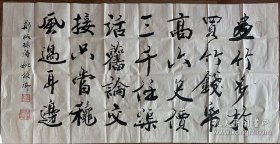 畫竹多於
買竹錢帋
高六尺價
三千任渠
話舊論交
接只當穐
風過耳邊
鄭板橋詩